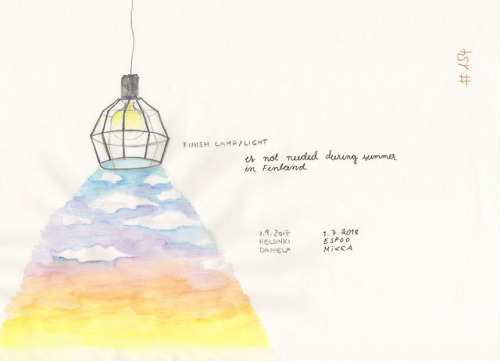 # 154
FINISH LAMP/LIGHT
is not needed during summer
in Finland
1.9.2017 1.7.2018
HELSINKI ESPOO
DANIELA MIKKA